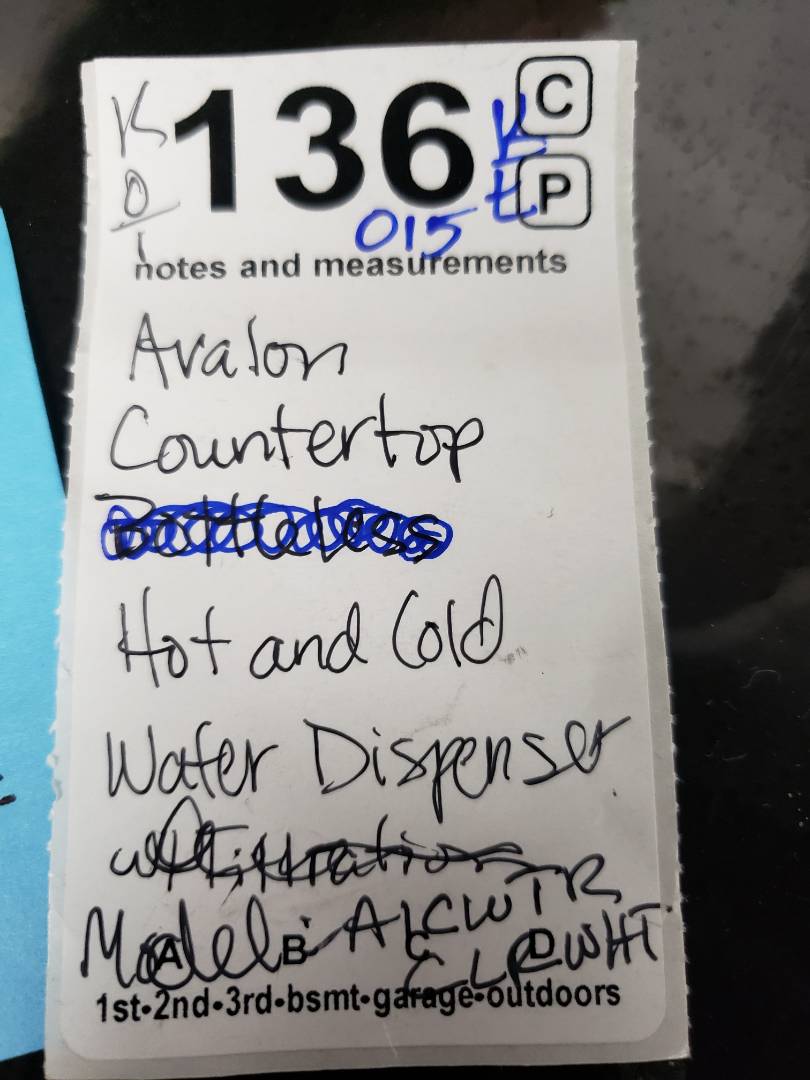 K 136 C
0 P
1 015
notes and measurements
Avalon
Countertop
Bottleless
Hot and Cold
Water Dispenser
w/ Filtration
Model: A1CWTR
A B C D
CLRWHT
1st•2nd•3rd•bsmt•garage•outdoors